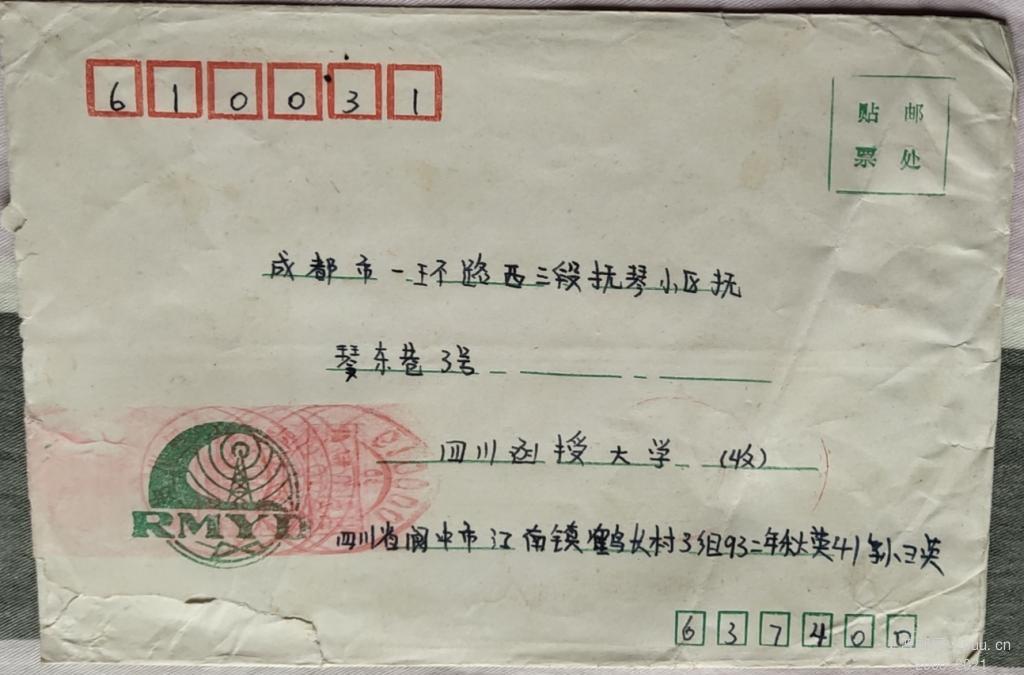 610031
贴 邮
票 处
成都市一环路西三段抚琴小区抚
琴东巷3号
四川函授大学 (收)
RMYD
四川省阆中市江南镇鹤火村3组93二年秋英41孙卫英
637400